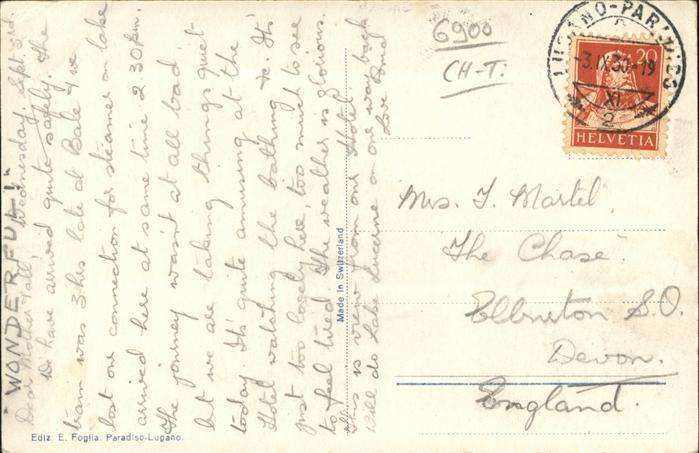 "WONDERFUL!"
Wednesday. Sept. 3rd.
Dear Mother & all
We have arrived quite safely. The
train was 3 hrs late at Bale & we
lost our connection for steamer on lake
arrived here at same time 2 30 p.m.
The journey wasn't at all bad
but we are taking things quiet
today. It's quite amusing at the
Hotel watching the bathing &c. It's
just too lovely here, too much to see
to feel tired. The weather is glorious.
This is view from our Hotel.
Will do Lake Lucerne on our way back
Love
6900
CH-T.
LUGANO-PARADISO
-3.IX.30.-19
XI
2
20
HELVETIA
Mrs. J. Martel.
The Chase.
S.O.
Devon.
England.
Made in Switzerland
Ediz. E. Foglia. Paradiso-Lugano.